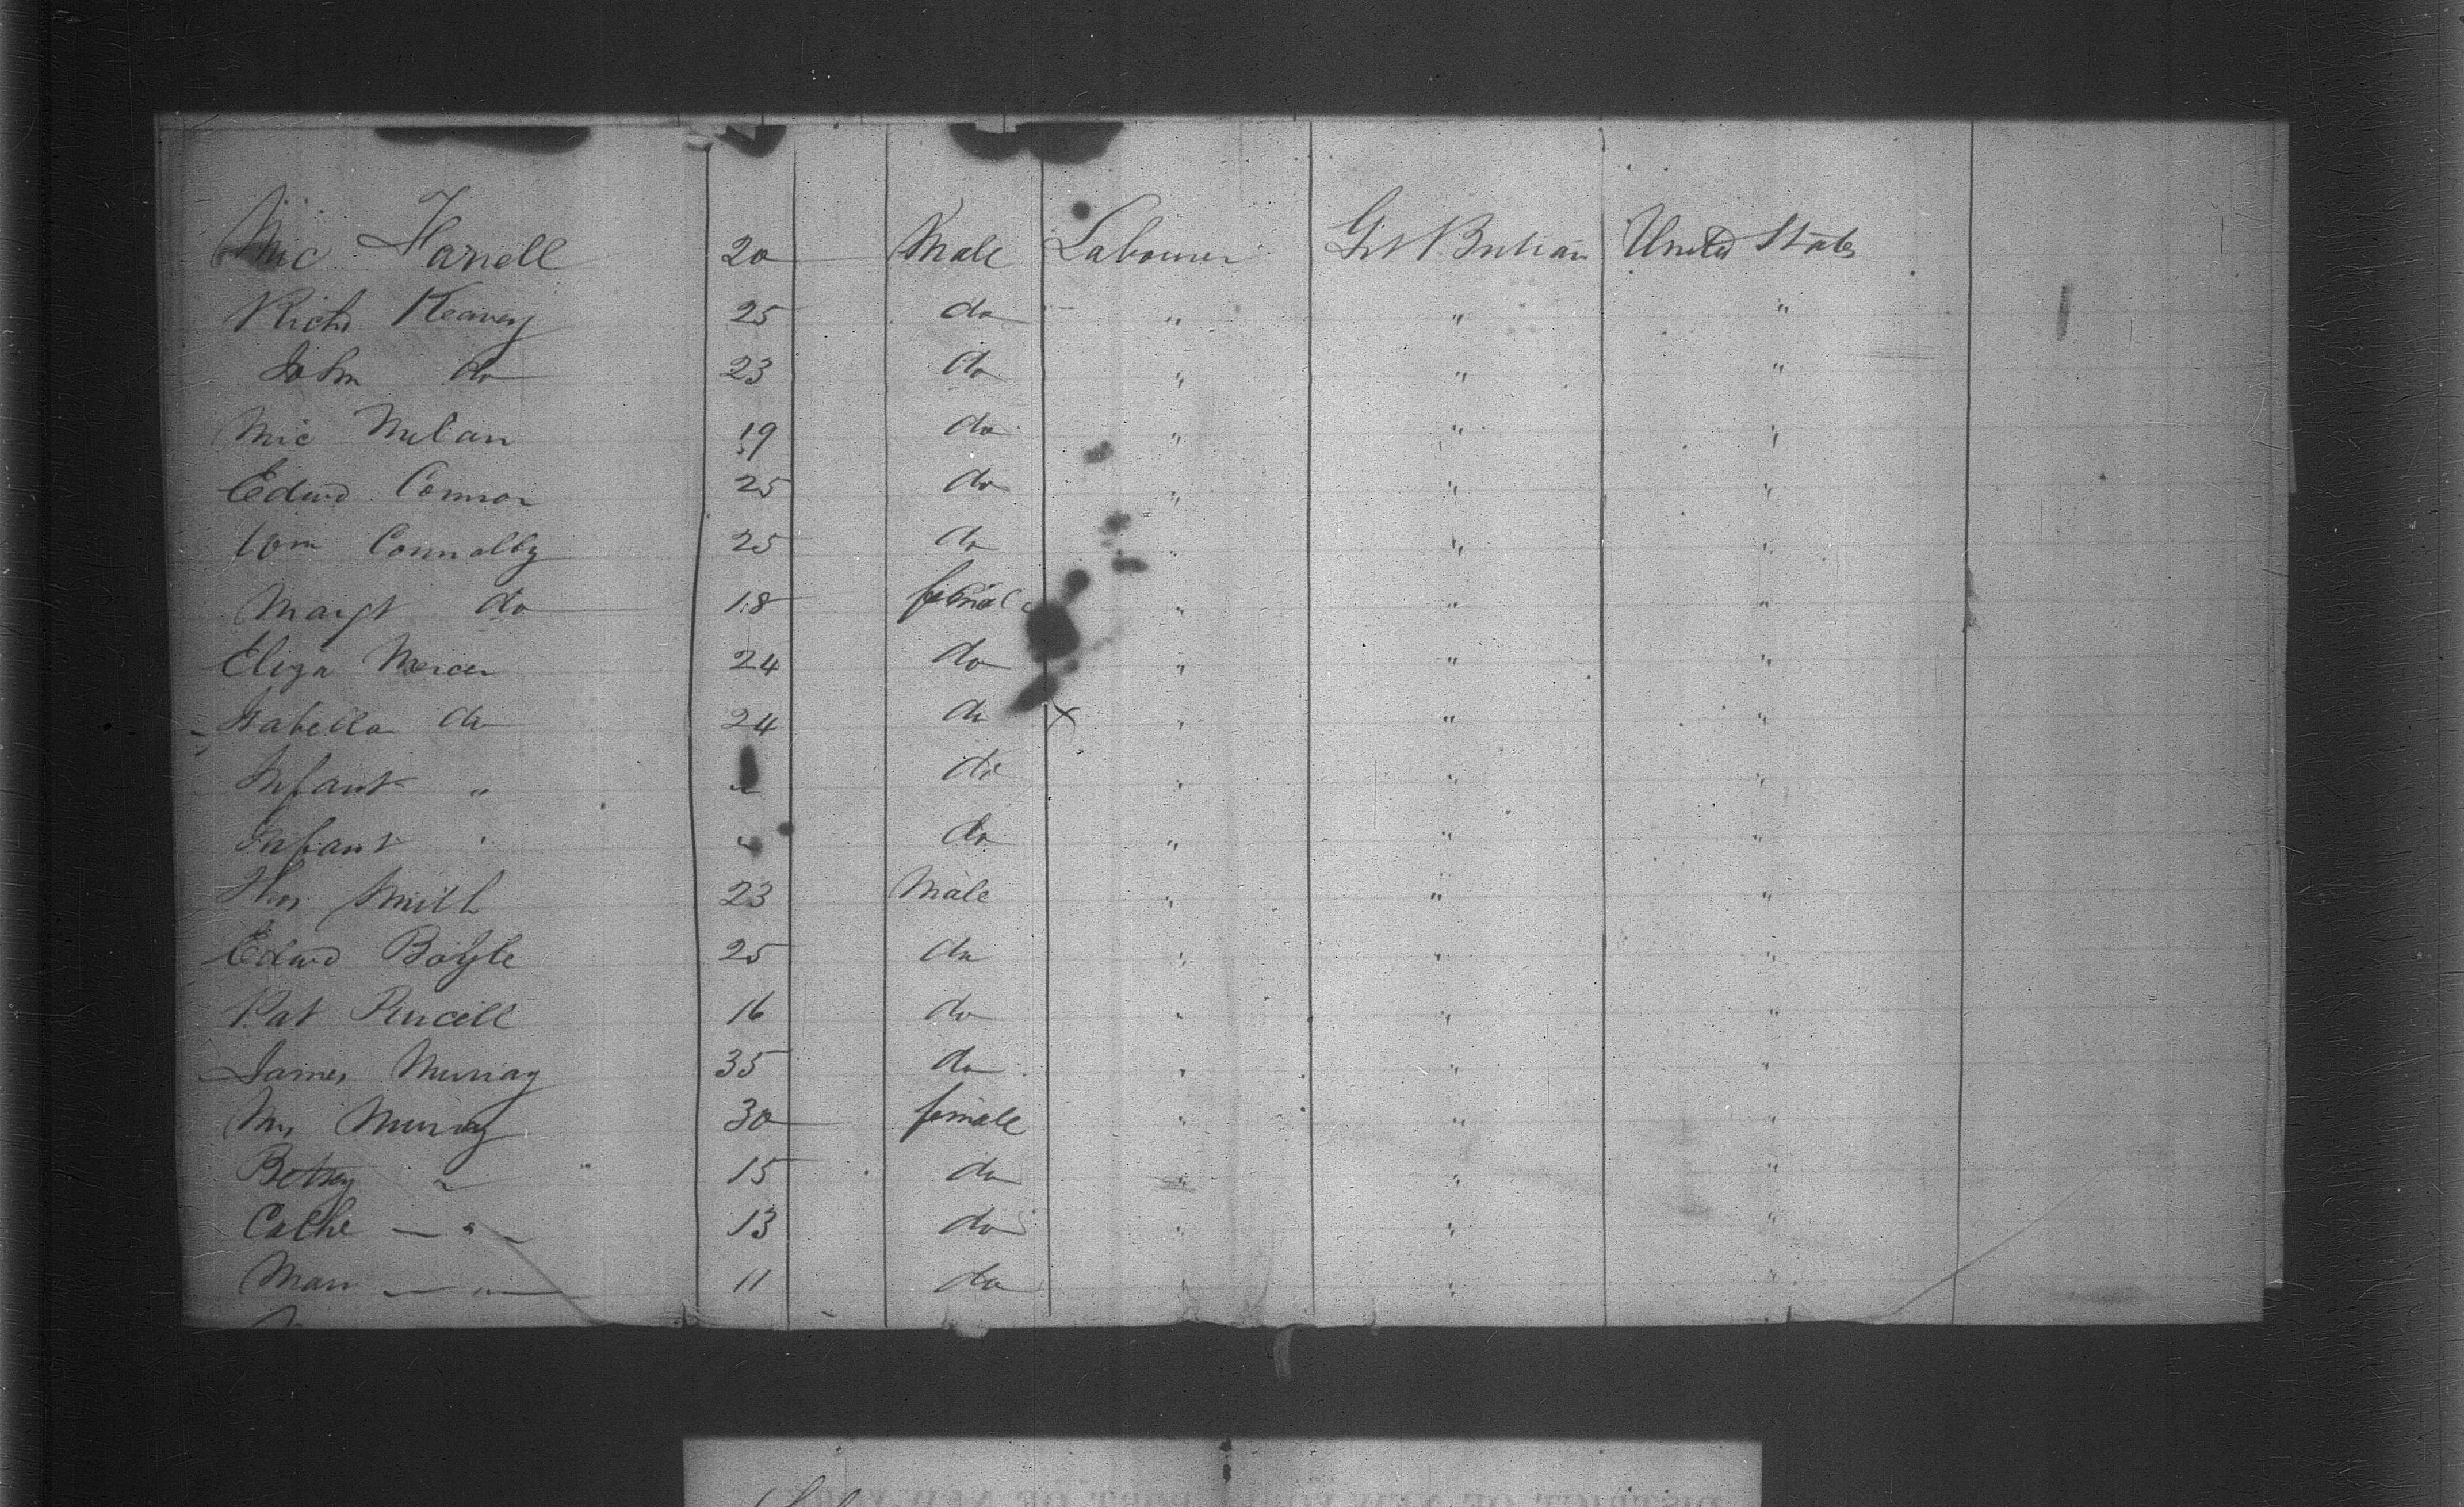 Mic Farrell 20 Male Labourer Grt Britian United States
Richd Keaveny 25 do " " "
John do 23 do " " "
Mic Milan 19 do " " "
Edwd Connor 25 do " " "
Wm Connolly 25 do " " "
Margt do 18 female " " "
Eliza Mercer 24 do " " "
Isabella do 24 do x " " "
Infant " " do " " "
Infant " " do " " "
Thos Smith 23 Male " " "
Edwd Boyle 25 do " " "
Pat Purcell 16 do " " "
James Murray 35 do " " "
Mrs Murray 30 female " " "
Betsey " 15 do " " "
Cathe — " — 13 do " " "
Mary — " — 11 do " " "
DISTRICT OF NEW-YORK—PORT OF NEW-YORK